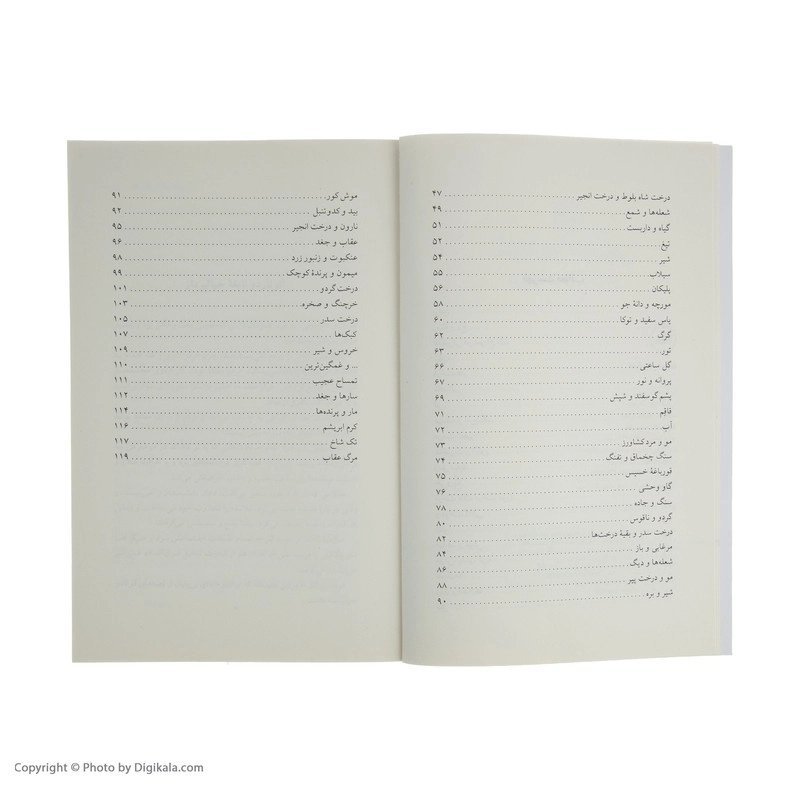 درخت شاه بلوط و درخت انجیر ۴۷
شعله‌ها و شمع ۴۹
گیاه و داربست ۵۱
تیغ ۵۲
شیر ۵۴
سیلاب ۵۵
پلیکان ۵۶
مورچه و دانهٔ جو ۵۸
یاس سفید و توکا ۶۰
گرگ ۶۲
تور ۶۳
گل ساعتی ۶۶
پروانه و نور ۶۷
پشم گوسفند و شپش ۶۹
قاقم ۷۱
آب ۷۲
مو و مرد کشاورز ۷۳
سنگ چخماق و تفنگ ۷۴
قورباغهٔ خسیس ۷۵
گاو وحشی ۷۶
سنگ و جاده ۷۸
گردو و ناقوس ۸۰
درخت سدر و بقیهٔ درخت‌ها ۸۲
مرغابی و باز ۸۴
شعله‌ها و دیگ ۸۶
مو و درخت پیر ۸۸
شیر و بره ۹۰
موش کور ۹۱
بید و کدو تنبل ۹۲
نارون و درخت انجیر ۹۵
عقاب و جغد ۹۶
عنکبوت و زنبور زرد ۹۸
میمون و پرندهٔ کوچک ۹۹
درخت گردو ۱۰۱
خرچنگ و صخره ۱۰۳
درخت سدر ۱۰۵
کبک‌ها ۱۰۷
خروس و شیر ۱۰۹
... و غمگین‌ترین ۱۱۰
تمساح عجیب ۱۱۱
سارها و جغد ۱۱۲
مار و پرنده‌ها ۱۱۴
کرم ابریشم ۱۱۶
تک شاخ ۱۱۷
مرگ عقاب ۱۱۹
Copyright © Photo by Digikala.com